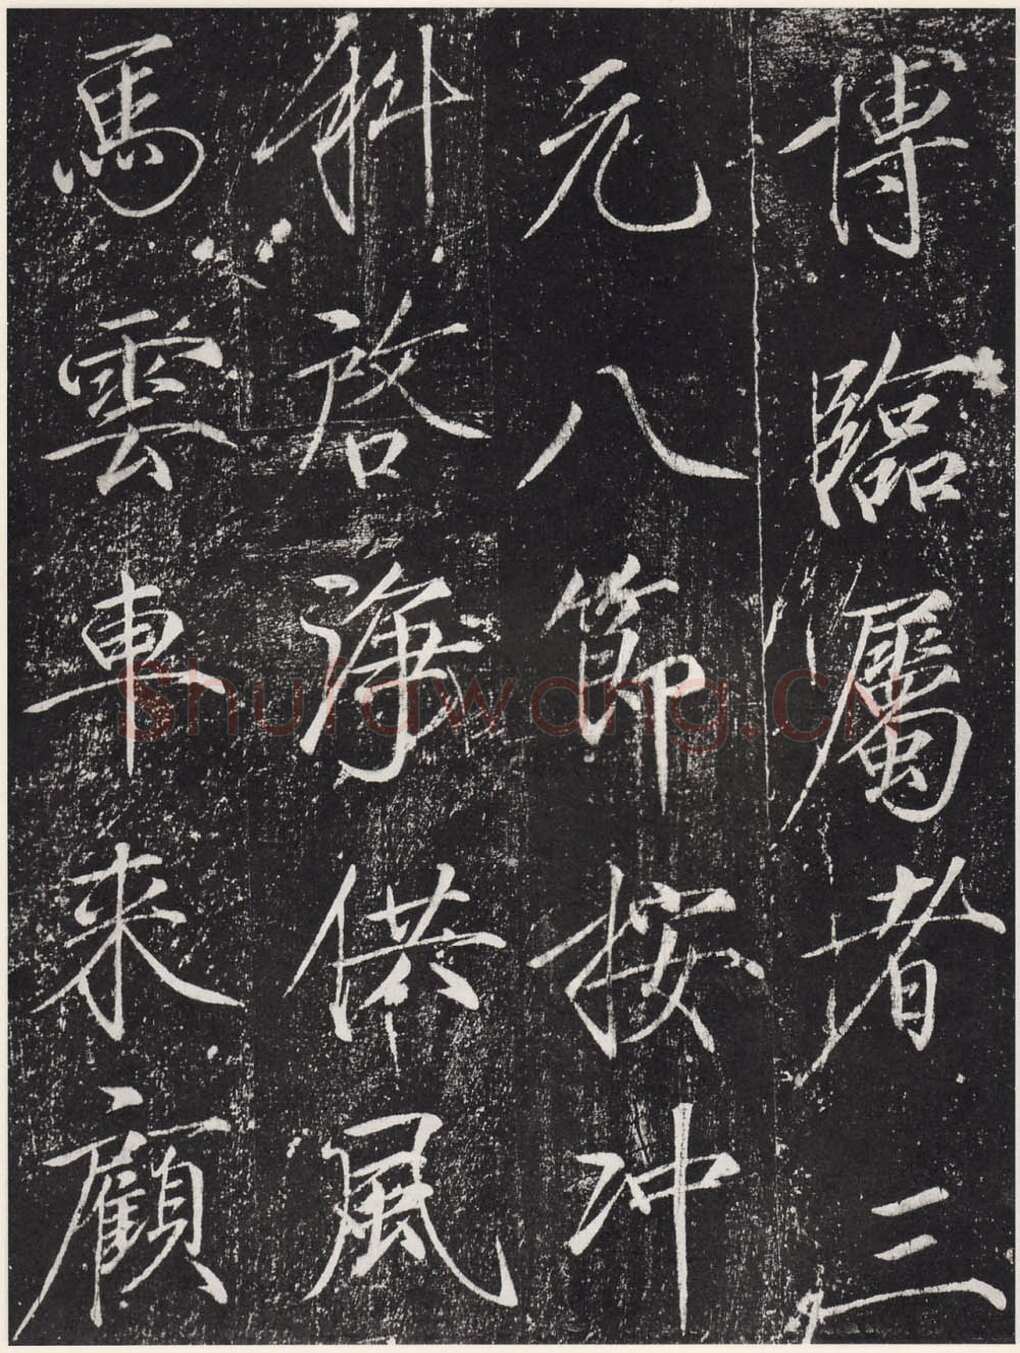 博臨屬者三
元八節按沖
科啓淨供風
馬雲車来顧
Shufawang.CN